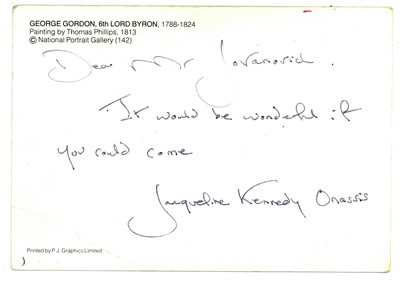 GEORGE GORDON, 6th LORD BYRON, 1788-1824
Painting by Thomas Phillips, 1813
© National Portrait Gallery (142)
Dear Mr Jovanovich.
It would be wonderful if
you could come
Jacqueline Kennedy Onassis
Printed by P.J. Graphics Limited
)